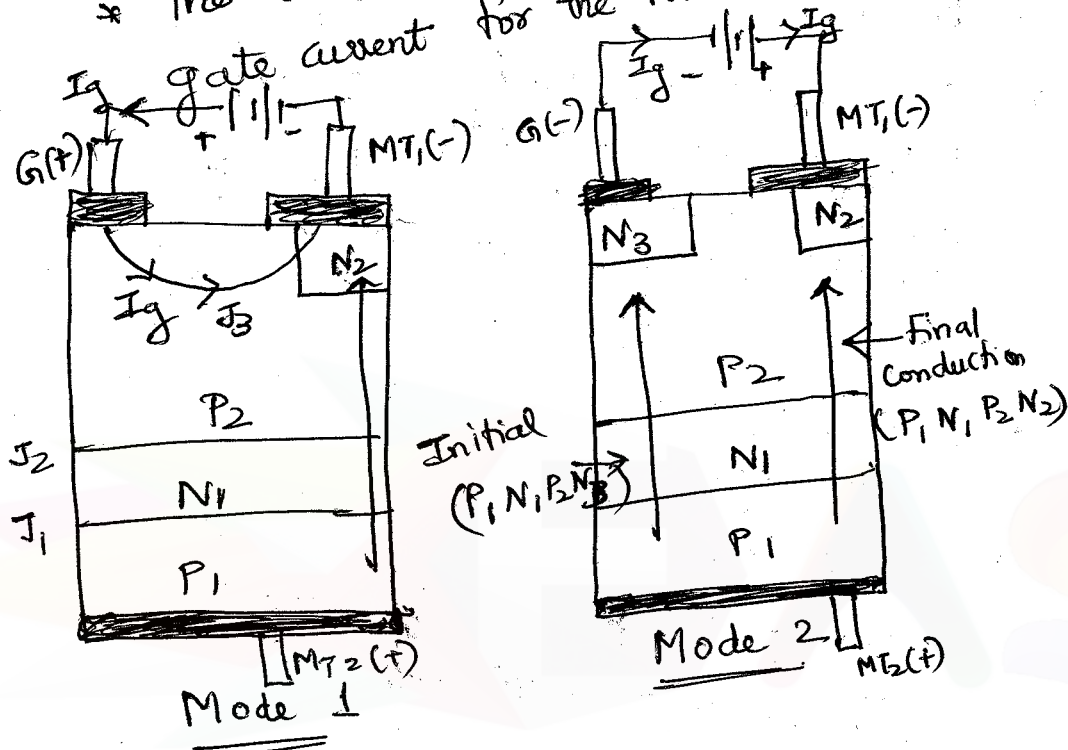 *
gate current for the
Ig
+
-
G(+)
MT1(-)
N2
Ig
J3
P2
J2
N1
J1
P1
MT2(+)
Mode 1
Ig
Ig
-
+
G(-)
MT1(-)
N3
N2
Final
conduction
(P1 N1 P2 N2)
P2
Initial
(P1 N1 P2 N3)
N1
P1
Mode 2
MT2(+)